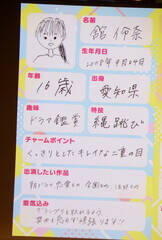 名前
舘 伊奈
生年月日
2008年9月24日
年齢
16歳
出身
愛知県
趣味
ドラマ鑑賞
特技
縄跳び
チャームポイント
くっきりとしたキレイな二重の目
出演したい作品
意気込み
グランプリを取れるよう